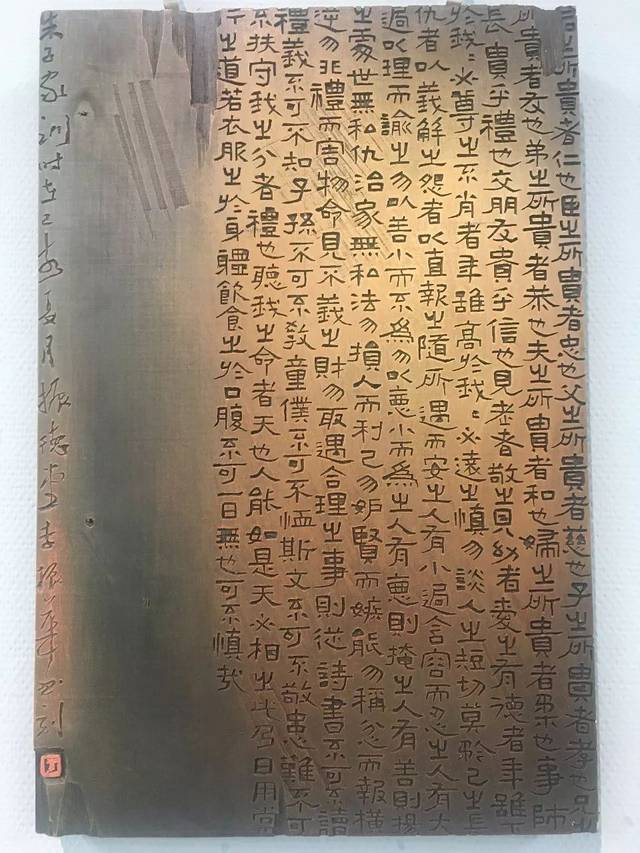 君之所貴者仁也臣之所貴者忠也父之所貴者慈也子之所貴者孝也兄之
所貴者友也弟之所貴者恭也夫之所貴者和也婦之所貴者柔也事師
長貴乎禮也交朋友貴乎信也見老者敬之見幼者愛之有德者年雖下
於我〻必尊之不肖者年雖高於我〻必遠之慎勿談人之短切莫矜己之長
仇者以義解之怨者以直報之隨所遇而安之人有小過含容而忍之人有大
過以理而諭之勿以善小而不為勿以惡小而為之人有惡則掩之人有善則揚
之處世無私仇治家無私法勿損人而利己勿妒賢而嫉能勿稱忿而報橫
逆勿非禮而害物命見不義之財勿取遇合理之事則從詩書不可不讀
禮義不可不知子孫不可不教童僕不可不恤斯文不可不敬患難不可
不扶守我之分者禮也聽我之命者天也人能如是天必相之此乃日用常
行之道若衣服之於身體飲食之於口腹不可一日無也可不慎哉
朱子家訓時在己亥夏月振德堂李振華書刻